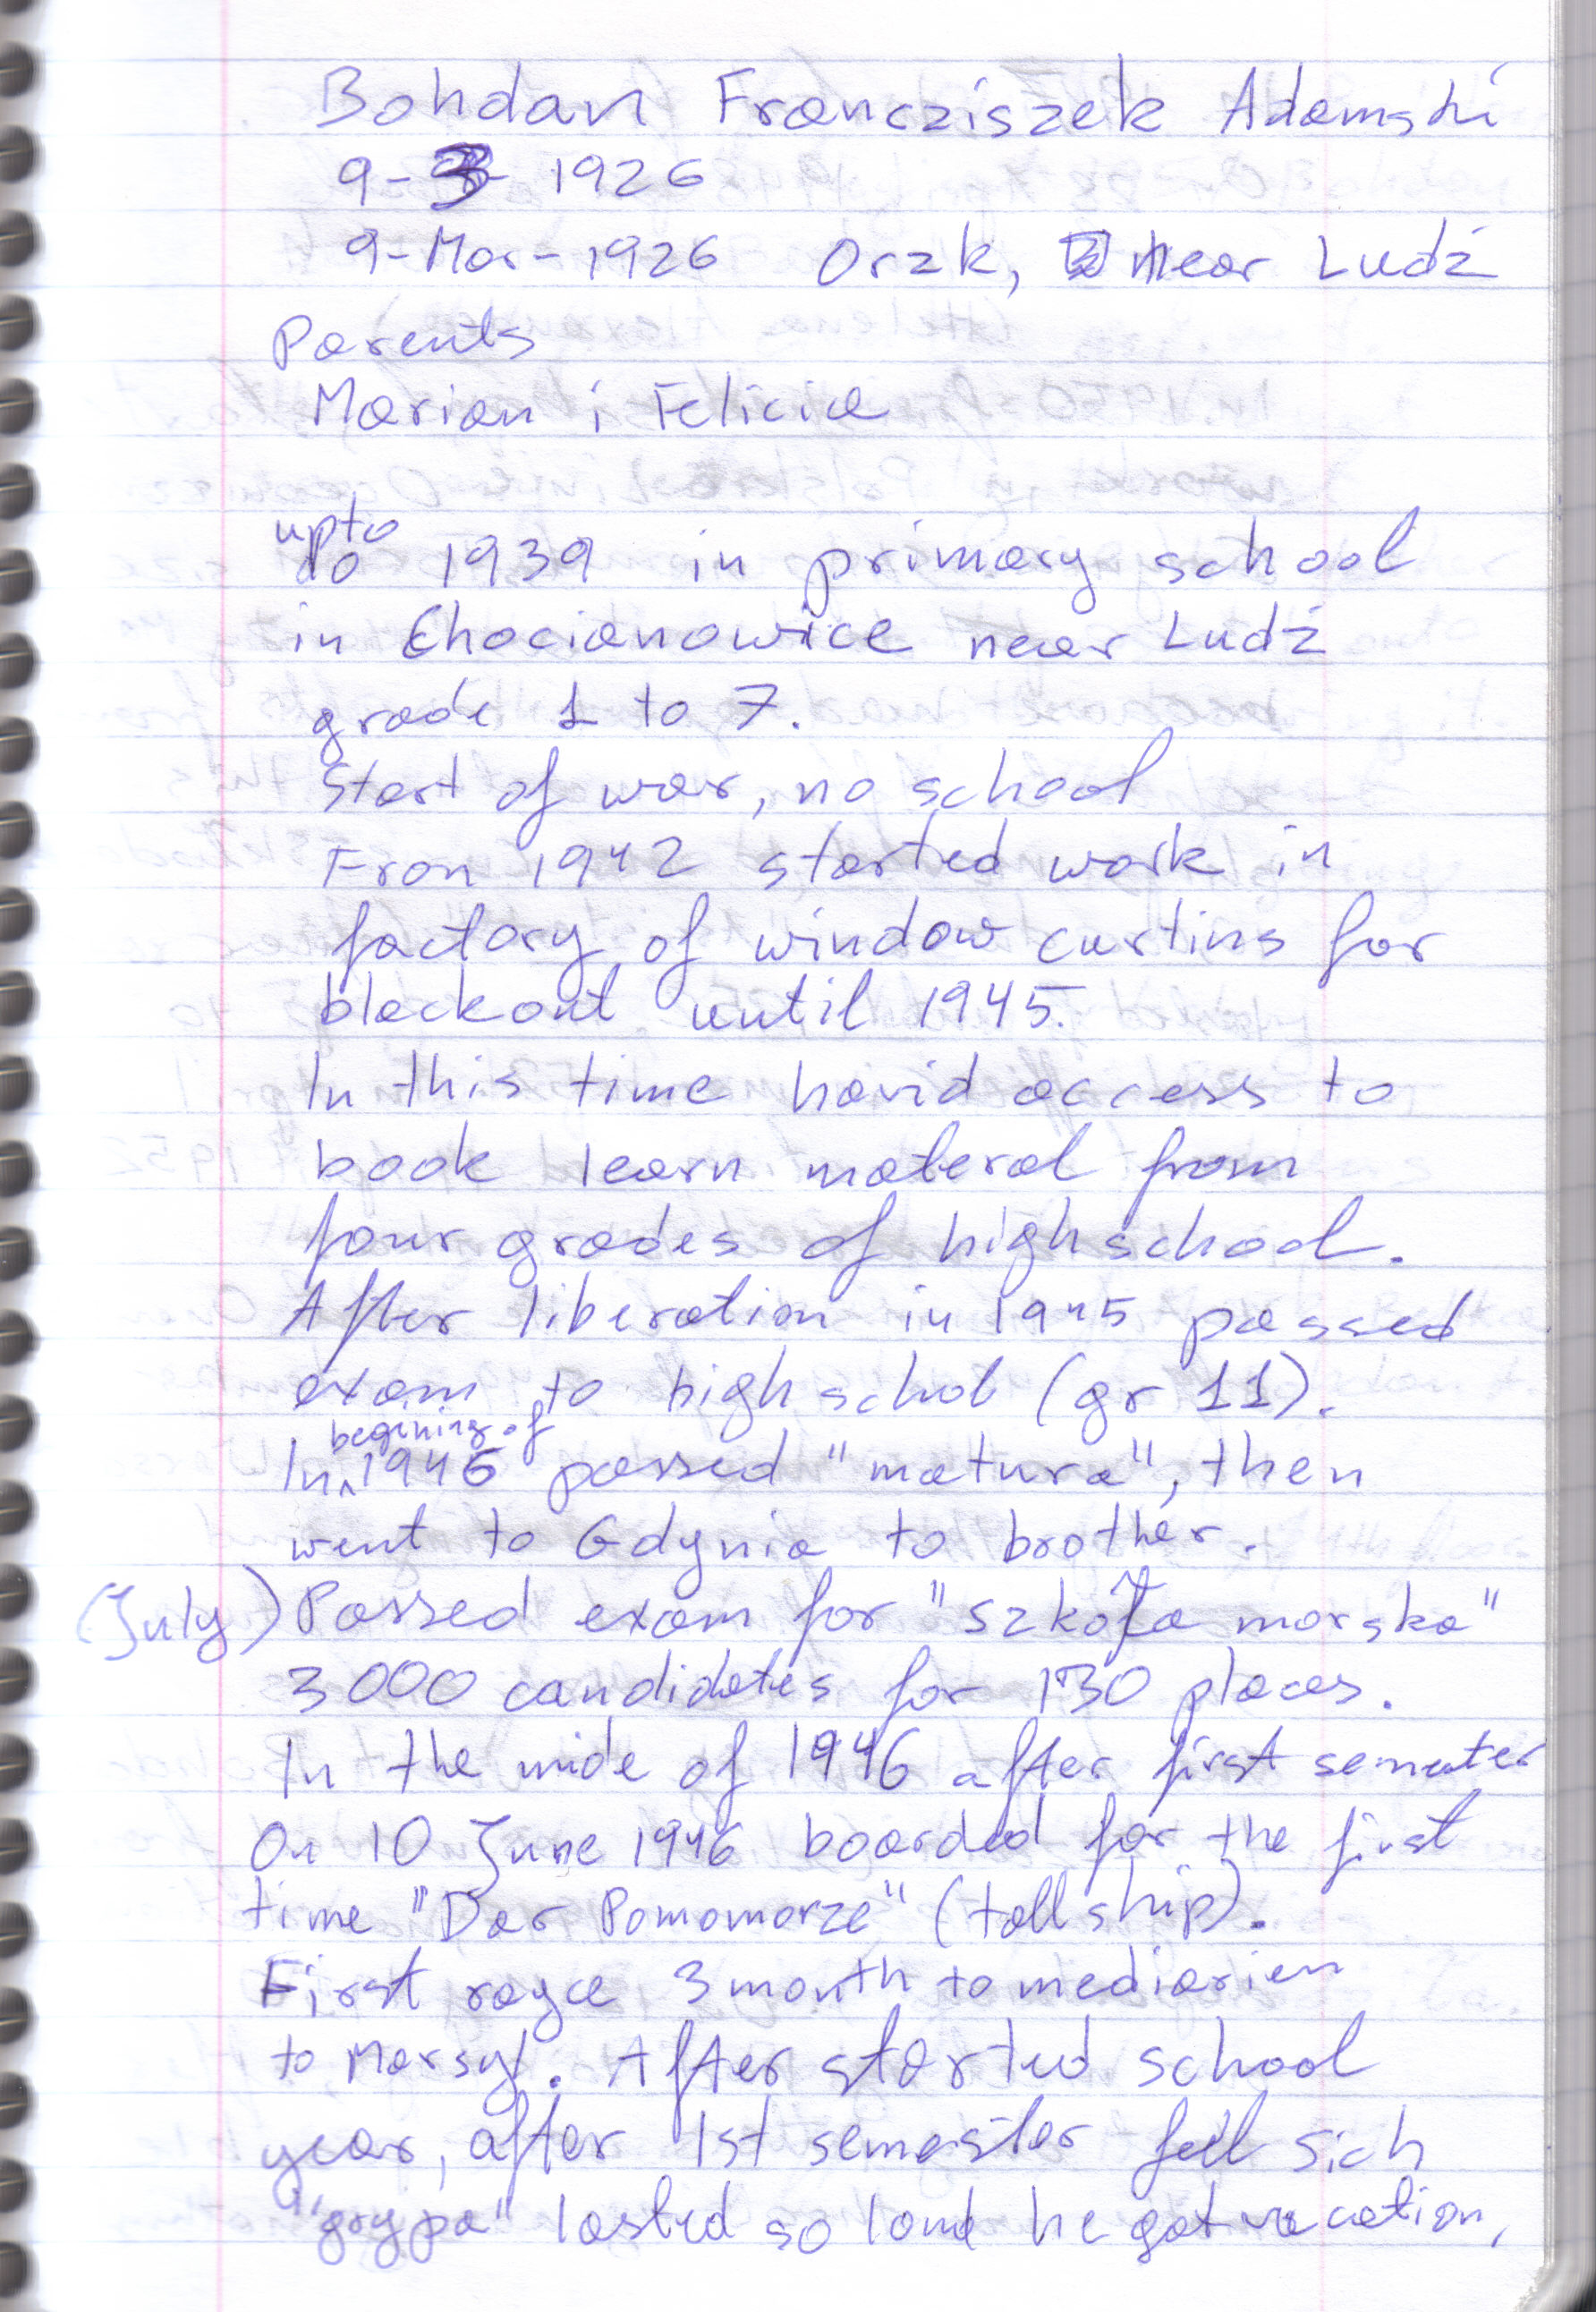 Bohdan Francziszek Adamski
9-3-1926
9-Mar-1926 Orzk, near Ludź
Parents
Marian i Felicia
upto
do 1939 in primary school
in Chocianowice near Ludź
grade 1 to 7.
Start of war, no school
Fron 1942 started work in
factory of window curtins for
blackout until 1945.
In this time havid access to
book learn materal from
four grades of highschool.
After liberation in 1945 passed
exam to high schol (gr 11).
begining of
In 1946 passed "matura", then
went to Gdynia to brother.
(July) Passed exam for "szkoła morska"
3000 candidates for 130 places.
In the mide of 1946 after first semester
On 10 June 1946 boarded for the first
time "Dar Pomomorze" (tall ship).
First royce 3 month to mediarien
to Marsyl. After started school
year, after 1st semester fell sich
"grypa" lasted so lond he got vacation,